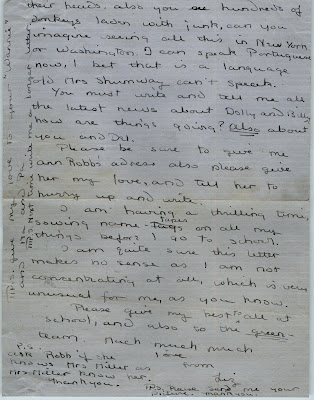 their heads. also you see hundreds of
donkeys laden with junk, can you
imagine seeing all this in New York
or Washington. I can speak Portuguese
now, I bet that is a language
old Mrs Shumway can't speak.
You must write and tell me all
the latest news about Dolly and
how are things going? (also) about
you and
Please be sure to give me
ann Robb's adress also please give
her my love, and tell her to
hurry up and write.
I am having a thrilling time,
sowing name Tapes on all my
things before I go to school.
I am quite sure this letter
makes no sense as I am not
concentrating at all, which is very
unusual for me, as you know.
Please give my best to all at
school, and also to the green-
team. Much much much
love
from
Liz
P.S.
ask Robb if she
knows Mrs Miller as
Mrs Miller knows her.
Thankyou.
P.S. Please send me your
picture. thankyou.
P.S. give my love to your
and Ma and Pa.